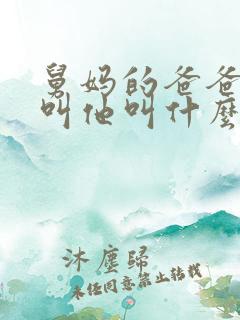 舅妈的爸爸
叫他叫什么
沐尘归
未经同意禁止转载